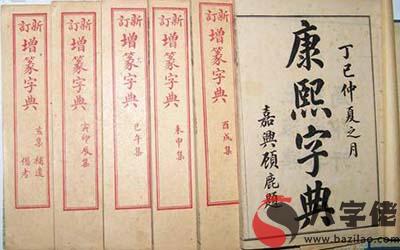 丁巳仲夏之月
康熙字典
嘉興顧鹿題
新訂
增篆字典
酉戌集
新訂
增篆字典
未申集
新訂
增篆字典
巳午集
新訂
增篆字典
寅卯辰集
新訂
增篆字典
亥集
補遺
備考
八字佬
www.bazilao.com